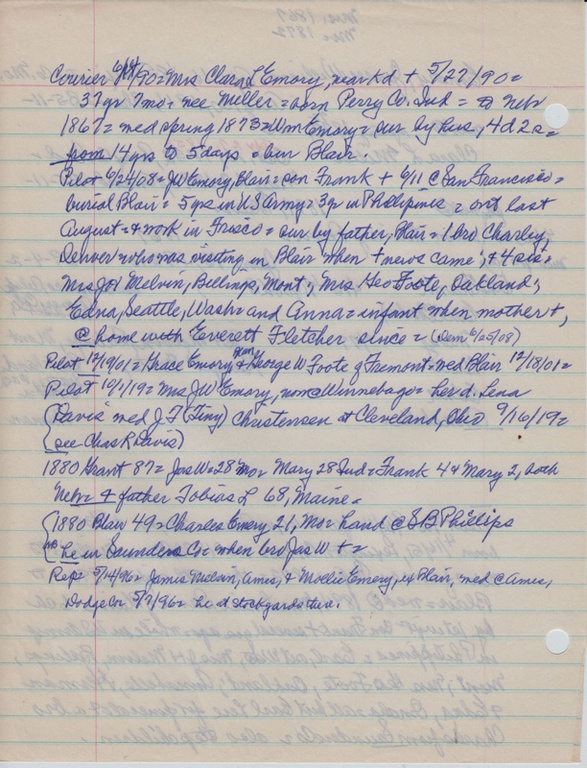 Courier 6/14/90 = Mrs Clara L Emory, wark d + 5/27/90 =
37yr 7mo = nee Miller = born Perry Co. Ind = Nebr
1867 = wed spring 1873 = Wm Emory = sur by hus, 4 d 2 s =
from 14 yrs to 5 days = bur Blair.
Pilot 6/24/08 = JW Emory, Blair = son Frank + 6/11 @ San Francisco =
burial Blair = 5 yrs in US Army = 3 yr in Phillipines = out last
August = & work in Frisco = sur by father, Blair = 1 bro Charley,
Denver = who was visiting in Blair when + news came; & 4 sis =
Mrs Jas Melvin, Bellings, Mont; Mrs Geo Foote, Oakland;
Edna, Seattle, Wash = and Anna = infant when mother +,
@ home with Everett Fletcher since = (Dem 6/25/08)
Pilot 12/19/01 = Grace Emory Blair & George W Foote of Fremont = wed Blair 12/18/01 =
Pilot 10/1/19 = Mrs JW Emory, now @ Winnebago = her d. Lena
Davis wed J.F. (Tiny) Christensen at Cleveland, Ohio 9/16/19 =
(see Chas R Davis)
1880 Grant 87 = Jas W = 28 Mo = Mary 28 Ind = Frank 4 & Mary 2, both
Nebr & father Tobias L 68, Maine =
1880 Blair 49 = Charles Emery, 21, Mo = hand @ SB Phillips
no he in Saunders Co = when bro Jas W + =
Rep = 5/14/96 = James Melvin, Ames, & Mollie Emery, ex Blair, wed @ Ames,
Dodge Co 5/7/96 = he at stockyards there.